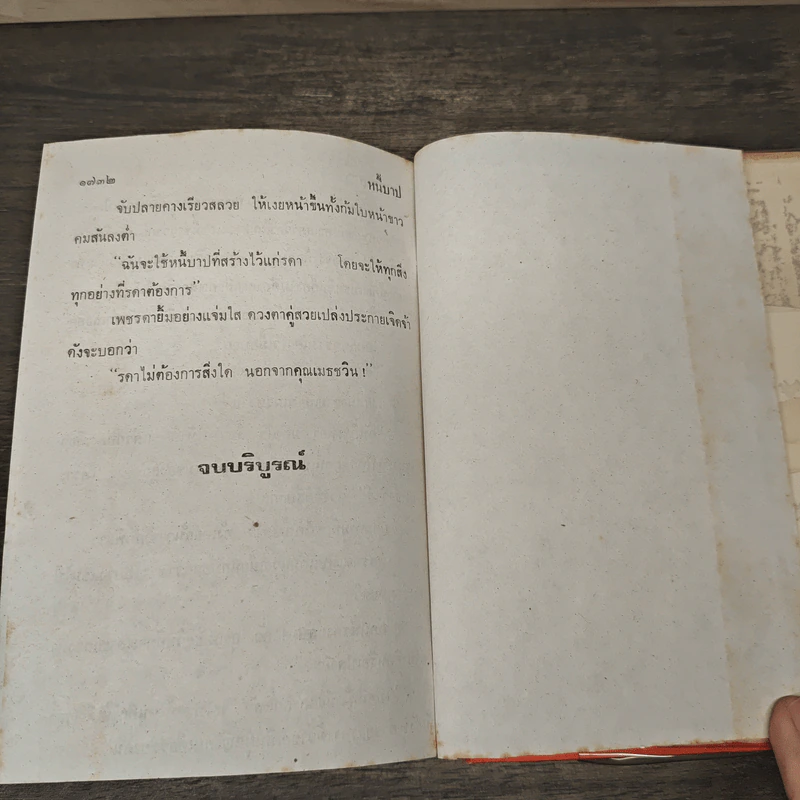 ๑๗๓๒
หนี้บาป
จับปลายคางเรียวสลวย ให้เงยหน้าขึ้นทั้งก้มใบหน้าขาว
คมสันลงต่ำ
“ฉันจะใช้หนี้บาปที่สร้างไว้แก่รดา โดยจะให้ทุกสิ่ง
ทุกอย่างที่รดาต้องการ”
เพชรดายิ้มอย่างแจ่มใส ดวงตาคู่สวยเปล่งประกายเจิดจ้า
ดังจะบอกว่า
“รดาไม่ต้องการสิ่งใด นอกจากคุณเมธชวิน!”
จบบริบูรณ์